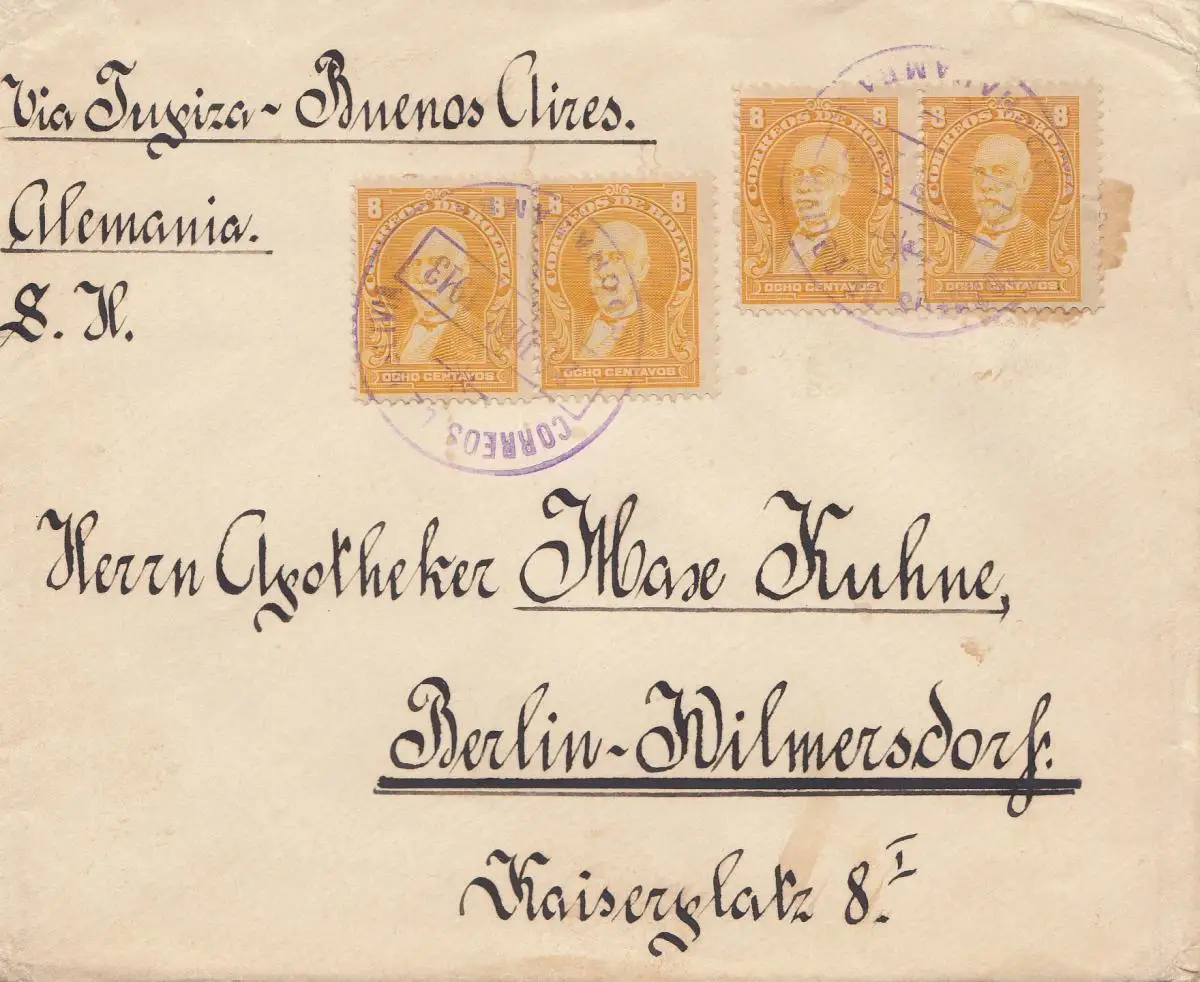 Via Tupiza - Buenos Aires.
Alemania.
S. H.
8 8
CORREOS DE BOLIVIA
OCHO CENTAVOS
8 8
CORREOS DE BOLIVIA
OCHO CENTAVOS
8 8
CORREOS DE BOLIVIA
OCHO CENTAVOS
8 8
CORREOS DE BOLIVIA
OCHO CENTAVOS
CORREOS
Herrn Apotheker Max Kuhne,
Berlin-Wilmersdorf.
Kaiserplatz 8.I